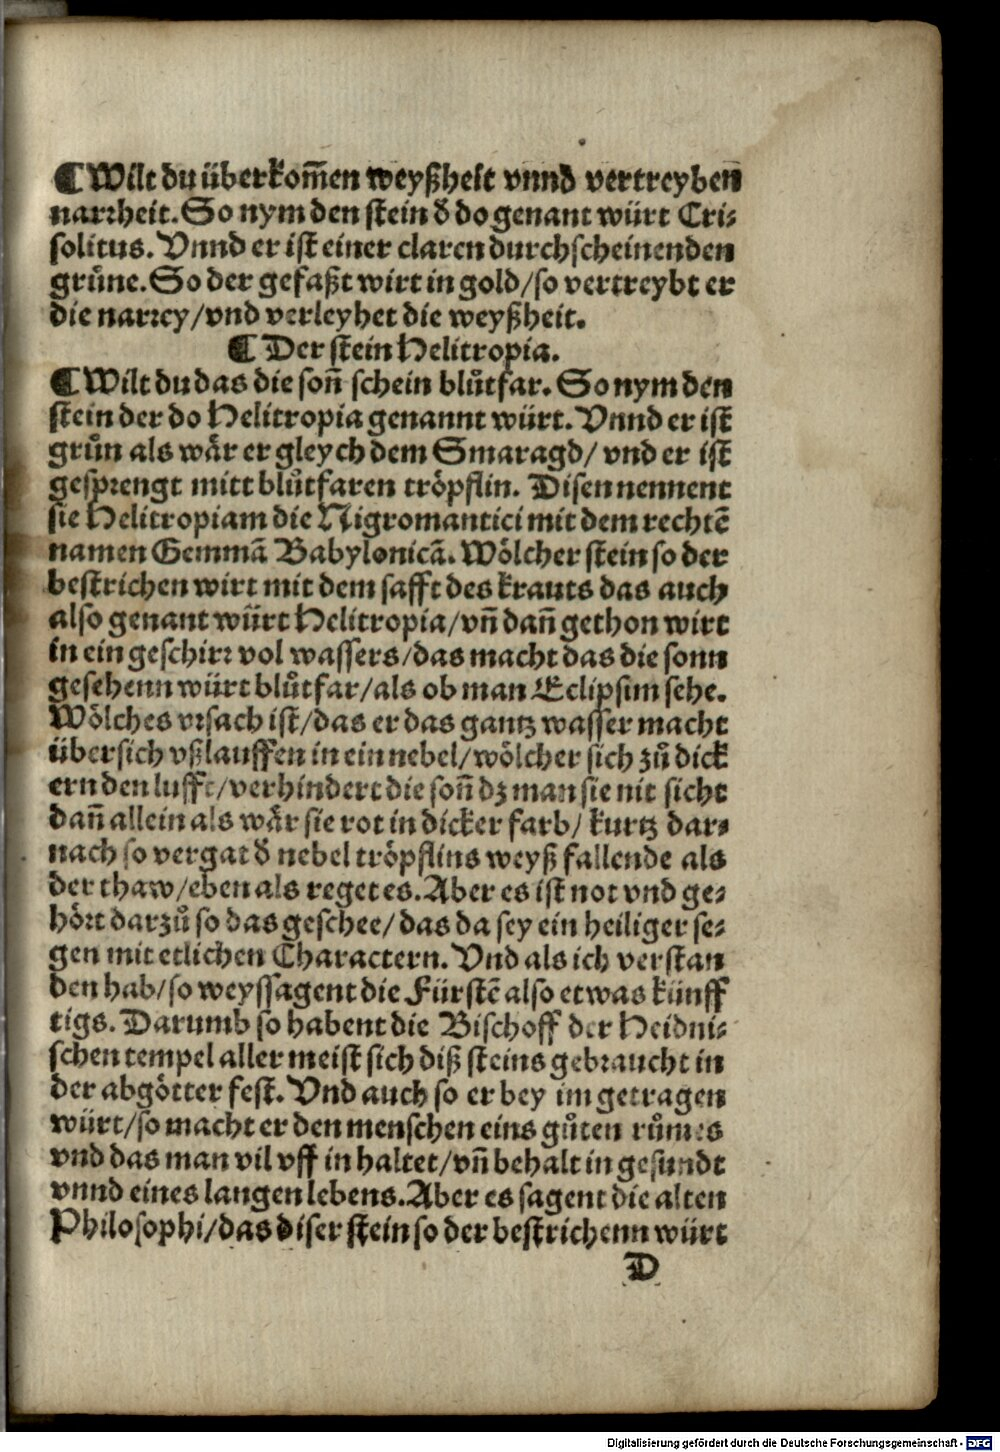 ¶ Wilt du überkom̄en weyßheit vnnd vertreyben
narrheit. So nym den stein d̕ do genant würt Cri⸗
solitus. Vnnd er ist einer claren durchscheinenden
gruͤne. So der gefaßt wirt in gold/so vertreybt er
die narrey/vnd verleyhet die weyßheit.
¶ Der stein Helitropia.
¶ Wilt du das die son̄ schein bluͦtfar. So nym den
stein der do Helitropia genannt würt. Vnnd er ist
gruͤn als waͤr er gleych dem Smaragd/ vnd er ist
gesprengt mitt bluͦtfaren tröpflin. Disen nennent
sie Helitropiam die Nigromantici mit dem rechtē
namen Gemmā Babylonicā. Wölcher stein so der
bestrichen wirt mit dem safft des krauts das auch
also genant würt Helitropia/vn̄ dan̄ gethon wirt
in ein geschirr vol wassers/das macht das die sonn
gesehenn würt bluͦtfar/als ob man Eclipsim sehe.
Wölches vrsach ist/das er das gantz wasser macht
übersich vßlauffen in ein nebel/wölcher sich zuͦ dick
ern den lufft/verhindert die son̄ dz man sie nit sicht
dan̄ allein als waͤr sie rot in dicker farb/ kurtz dar⸗
nach so vergat d̕ nebel tröpflins weyß fallende als
der thaw/eben als reget es. Aber es ist not vnd ge⸗
hört darzuͦ so das geschee/das da sey ein heiliger se⸗
gen mit etlichen Charactern. Vnd als ich verstan
den hab/so weyssagent die Fürstē also etwas künff
tigs. Darumb so habent die Bischoff der Heidni⸗
schen tempel aller meist sich diß steins gebraucht in
der abgötter fest. Vnd auch so er bey im getragen
würt/so macht er den menschen eins guͦten ruͦmes
vnd das man vil vff in haltet/vn̄ behalt in gesundt
vnnd eines langen lebens. Aber es sagent die alten
Philosophi/das diser stein so der bestrichenn würt
D
Digitalisierung gefördert durch die Deutsche Forschungsgemeinschaft - DFG